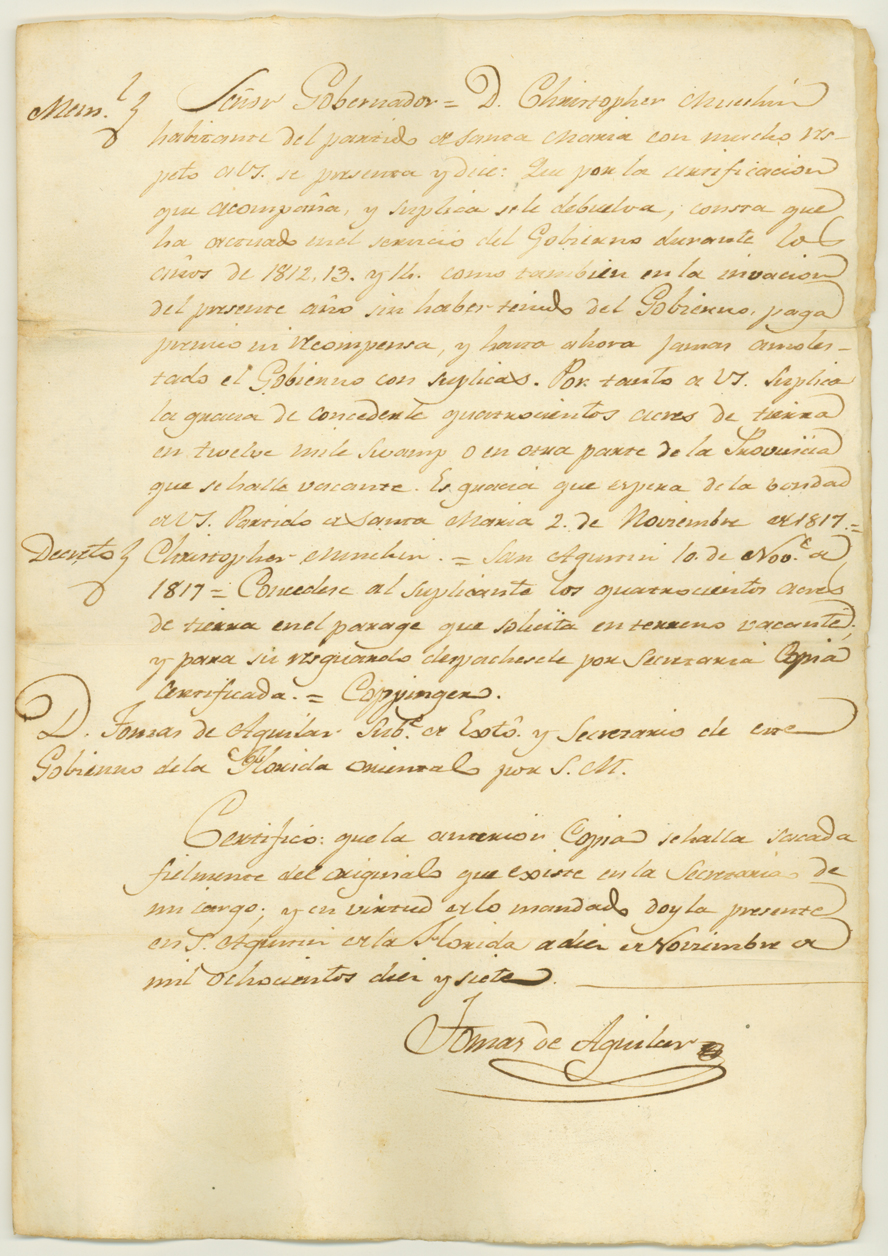 Mem.l Señor Gobernador = D. Christopher Minchin
habitante del partido de Santa Maria con mucho res-
peto a VS. se presenta y dice: Que por la certificacion
que acompaña, y suplica se le debuelva, consta que
ha actuado en el servicio del Gobierno durante los
años de 1812, 13. y 14. como tambien en la invacion
del presente año sin haber tenido del Gobierno, paga
premio ni recompensa, y hasta ahora jamas â moles-
tado el Gobierno con suplicas. Por tanto a VS. suplica
la gracia de concederle quatrocientos acres de tierra
en twelve mile Swamp o en otra parte de la Provincia
que se halle vacante. Es gracia que espera de la bondad
de VS. Partido de Santa Maria 2. de Noviembre de 1817. =
Decreto Christopher Minchin. = San Agustin 10. de Nov.e de
1817 = Concedese al suplicante los quatrocientos acres
de tierra en el parage que solicita en terreno vacante;
y para su resguardo despachesele por Secretaria Copia
Certificada. = Coppinger.
D. Tomas de Aguilar Sub.te de Exto. y Secretario de este
Gobierno de la Florida oriental por S. M.
Certifico: que la anterior Copia se halla sacada
fielmente del original que existe en la Secretaria de
mi cargo; y en virtud de lo mandado doy la presente
en S. Agustin de la Florida a diez de Noviembre de
mil ochocientos diez y siete.
Tomas de Aguilar